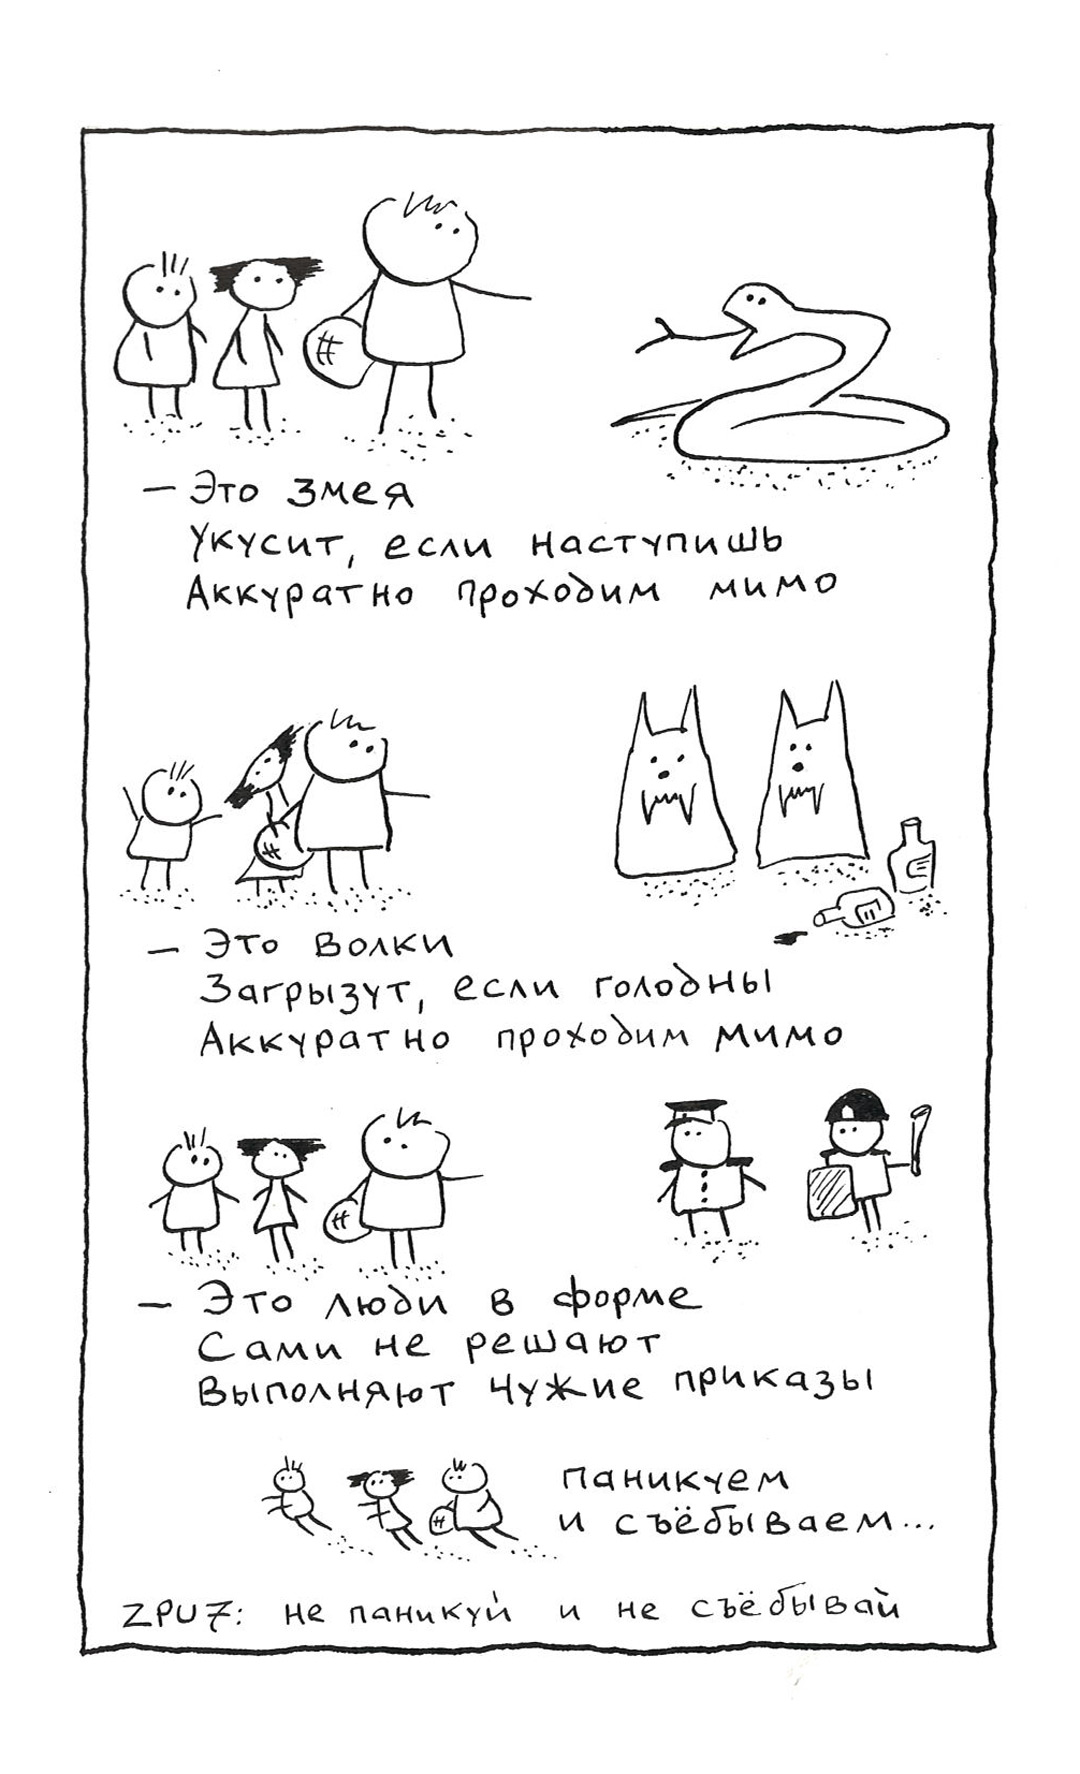 — Это змея
Укусит, если наступишь
Аккуратно проходим мимо
— Это волки
Загрызут, если голодны
Аккуратно проходим мимо
— Это люди в форме
Сами не решают
Выполняют чужие приказы
паникуем
и съёбываем...
ZPU7: не паникуй и не съёбывай